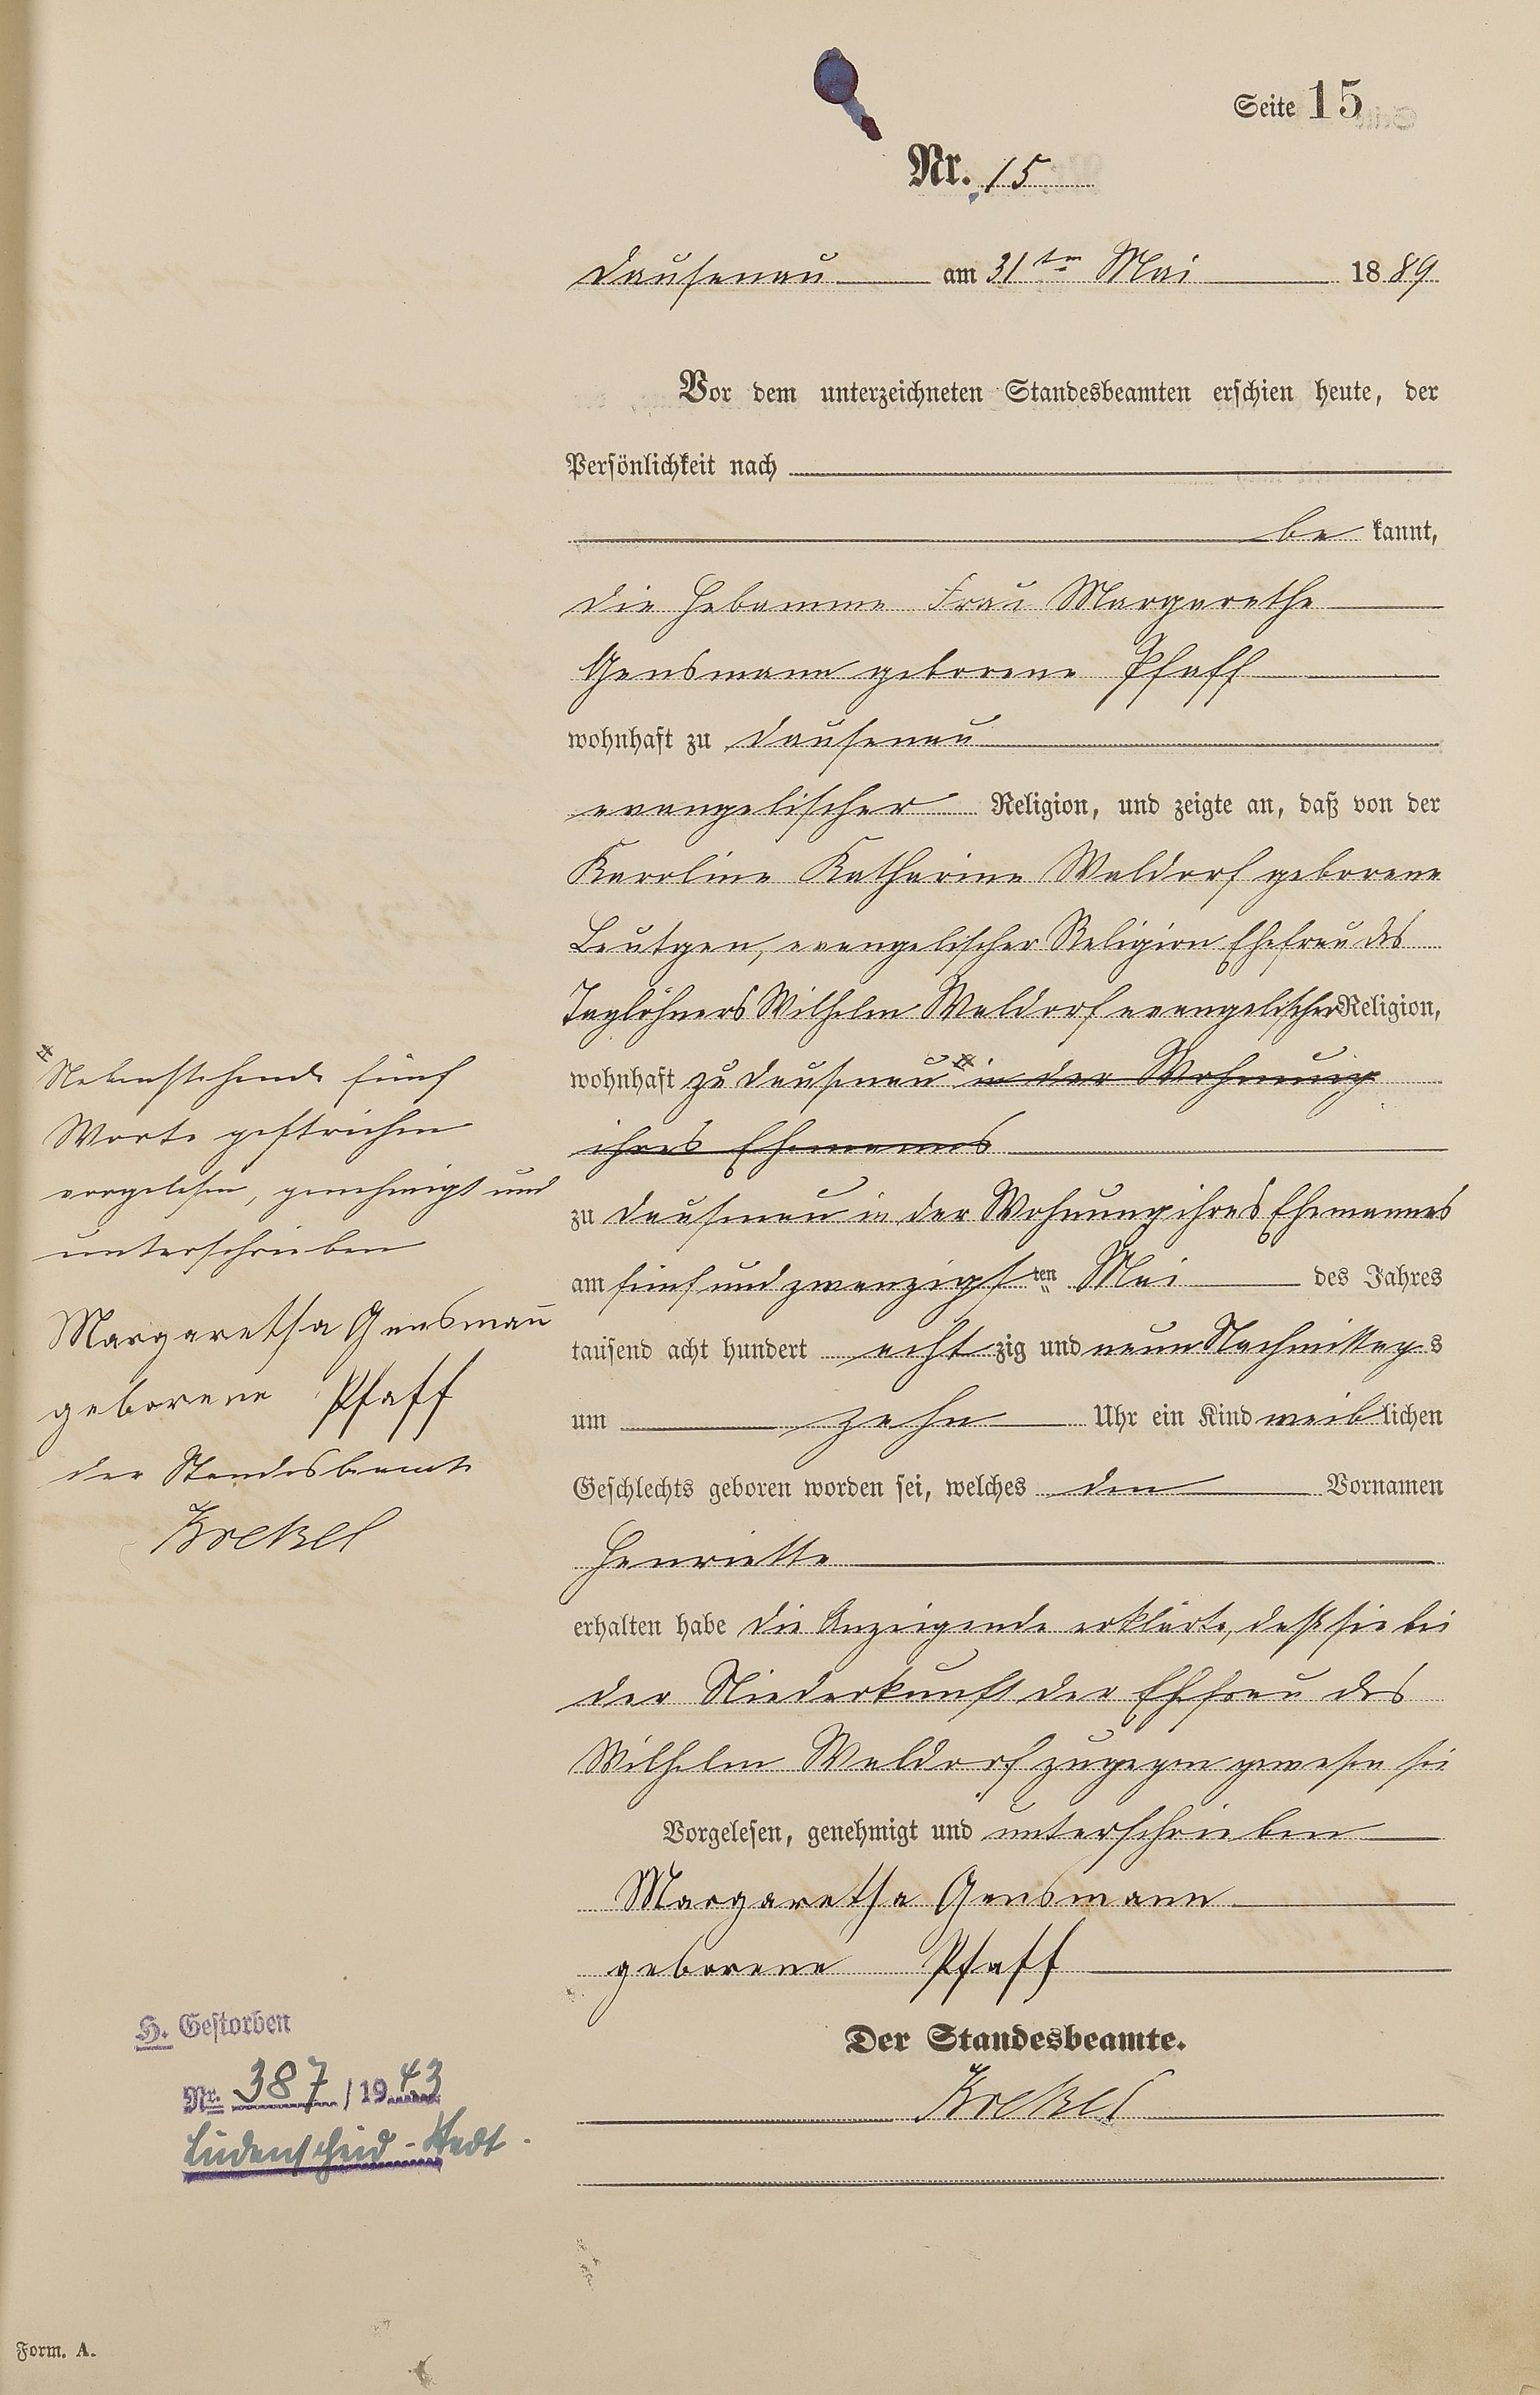 Seite 15
Nr. 15
Dausenau am 31ten Mai 1889
Vor dem unterzeichneten Standesbeamten erschien heute, der
Persönlichkeit nach
be kannt,
die Hebamme Frau Margarethe
Gensmann geborene Pfaff
wohnhaft zu Dausenau
evangelischer Religion, und zeigte an, daß von der
Karoline Katharine Waldorf geborene
Leutgen, evangelischer Religion Ehefrau des
Taglöhners Wilhelm Waldorf evangelischer Religion,
wohnhaft zu Dausenau in der Wohnung
ihres Ehemannes
zu Dausenau in der Wohnung ihres Ehemannes
am fünf und zwanzigsten Mai des Jahres
tausend acht hundert acht zig und neun Nachmittags
um zehn Uhr ein Kind weiblichen
Geschlechts geboren worden sei, welches den Vornamen
Henriette
erhalten habe die Anzeigende erklärte, daß sie bei
der Niederkunft der Ehefrau des
Wilhelm Waldorf zugegen gewesen sei
Vorgelesen, genehmigt und unterschrieben
Margaretha Gensmann
geborene Pfaff
Der Standesbeamte.
Krekel
Nebenstehende fünf
Worte gestrichen
vorgelesen, genehmigt und
unterschrieben
Margaretha Gensmann
geborene Pfaff
der Standesbeamte
Krekel
H. Gestorben
Nr. 387 / 1943
Lüdenscheid-Stadt.
Form. A.